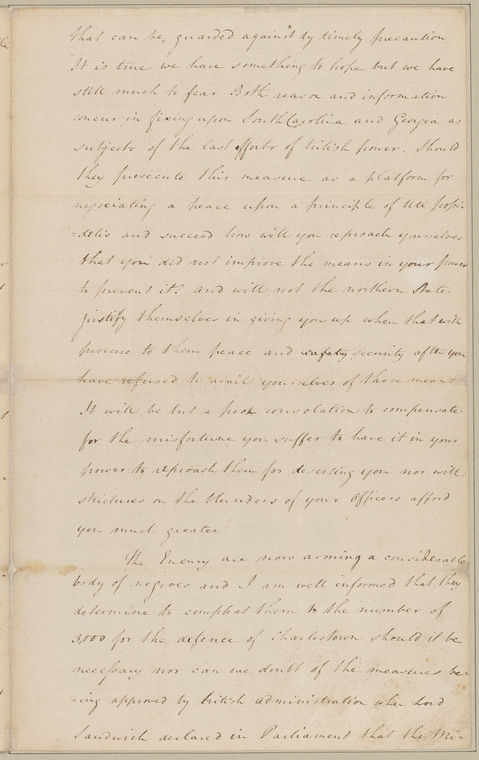 that can be guarded against by timely precaution
It is true we have something to hope but we have
still much to fear Both reason and information
concur in fixing upon South Carolina and Georgia as
subjects of the last efforts of british power. Should
they prosecute this measure as a platform for
negociating a peace upon a principle of Uti possi
=detis and succeed how will you reproach yourselves
that you did not improve the means in your power
to prevent it? and will not the northern States
justify themselves in giving you up when that will
procure to them peace and security after you
have refused to avail yourselves of those means
It will be but a poor consolation to compensate
for the misfortune you suffer to have it in your
power to reproach them for deserting you nor will
strictures on the blunders of your Officers afford
you much greater
The Enemy are now arming a considerable
body of negroes and I am well informed that they
determine to compleat them to the number of
3,000 for the defence of Charlestown should it be
necessary nor can we doubt of the measures be-
-ing approved by british administration when Lord
Sandwich declared in Parliament that the Mi-